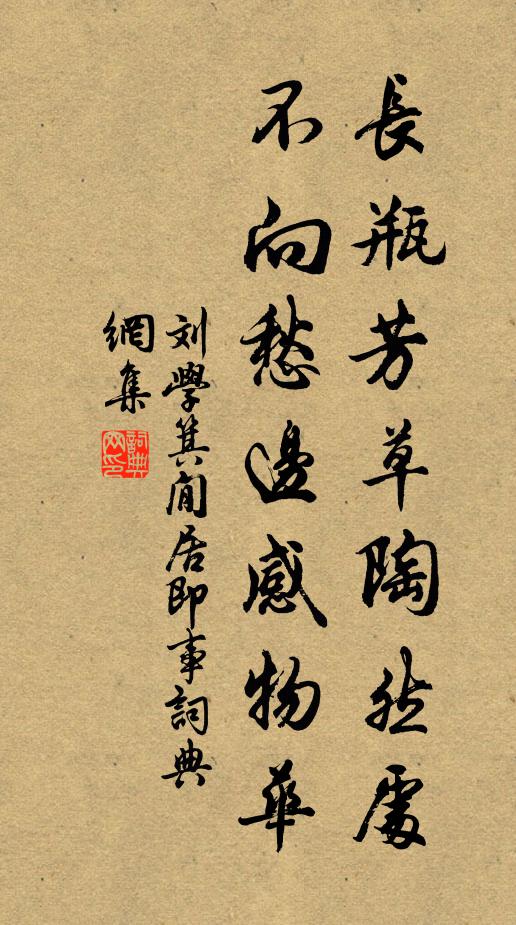 長瓶芳草陶然處
不向愁邊感物華
刘學箕閒居即事詞典
網集
詞典
网印